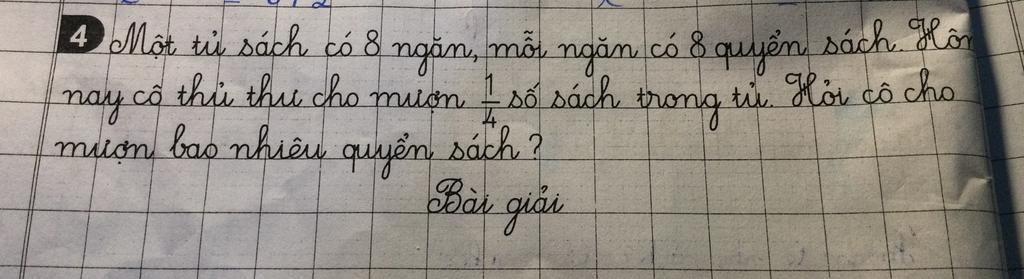 4 Một tủ sách có 8 ngăn, mỗi ngăn có 8 quyển sách. Hôm
nay cô thủ thư cho mượn 1/4 số sách trong tủ. Hỏi cô cho
mượn bao nhiêu quyển sách?
Bài giải